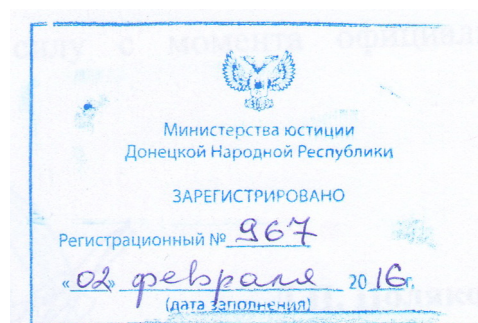 силу с момента официал
Министерства юстиции
Донецкой Народной Республики
ЗАРЕГИСТРИРОВАНО
Регистрационный № 967
«02» февраля 2016г.
(дата заполнения)